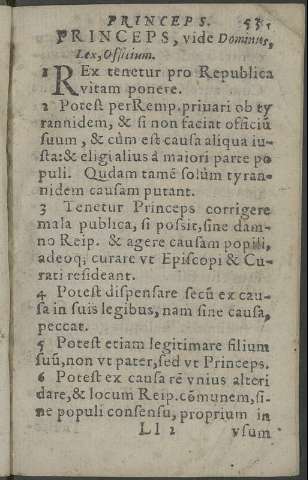 PRINCEPS. 531
PRINCEPS, vide Dominus,
Lex, Officium.
1 REx tenetur pro Republica
vitam ponere.
2 Potest perRemp.priuari ob ty
rannidem, & si non faciat officiũ
suum, & cùm est causa aliqua iu-
sta:& eligi alius á maiori parte po
puli. Qudam tamẽ solùm tyran-
nidem causam putant.
3 Tenetur Princeps corrigere
mala publica, si possit, sine dam-
no Reip. & agere causam popili,
adeoq; curare vt Episcopi & Cu-
rati resideant.
4 Potest dispensare secũ ex cau-
sa in suis legibus, nam sine causa,
peccat.
5 Potest etiam legitimare filium
suũ, non vt pater, sed vt Princeps.
6 Potest ex causa rẽ vnius alteri
dare, & locum Reip.cõmunem, si-
ne populi consensu, proprium in
Ll 2 vsum